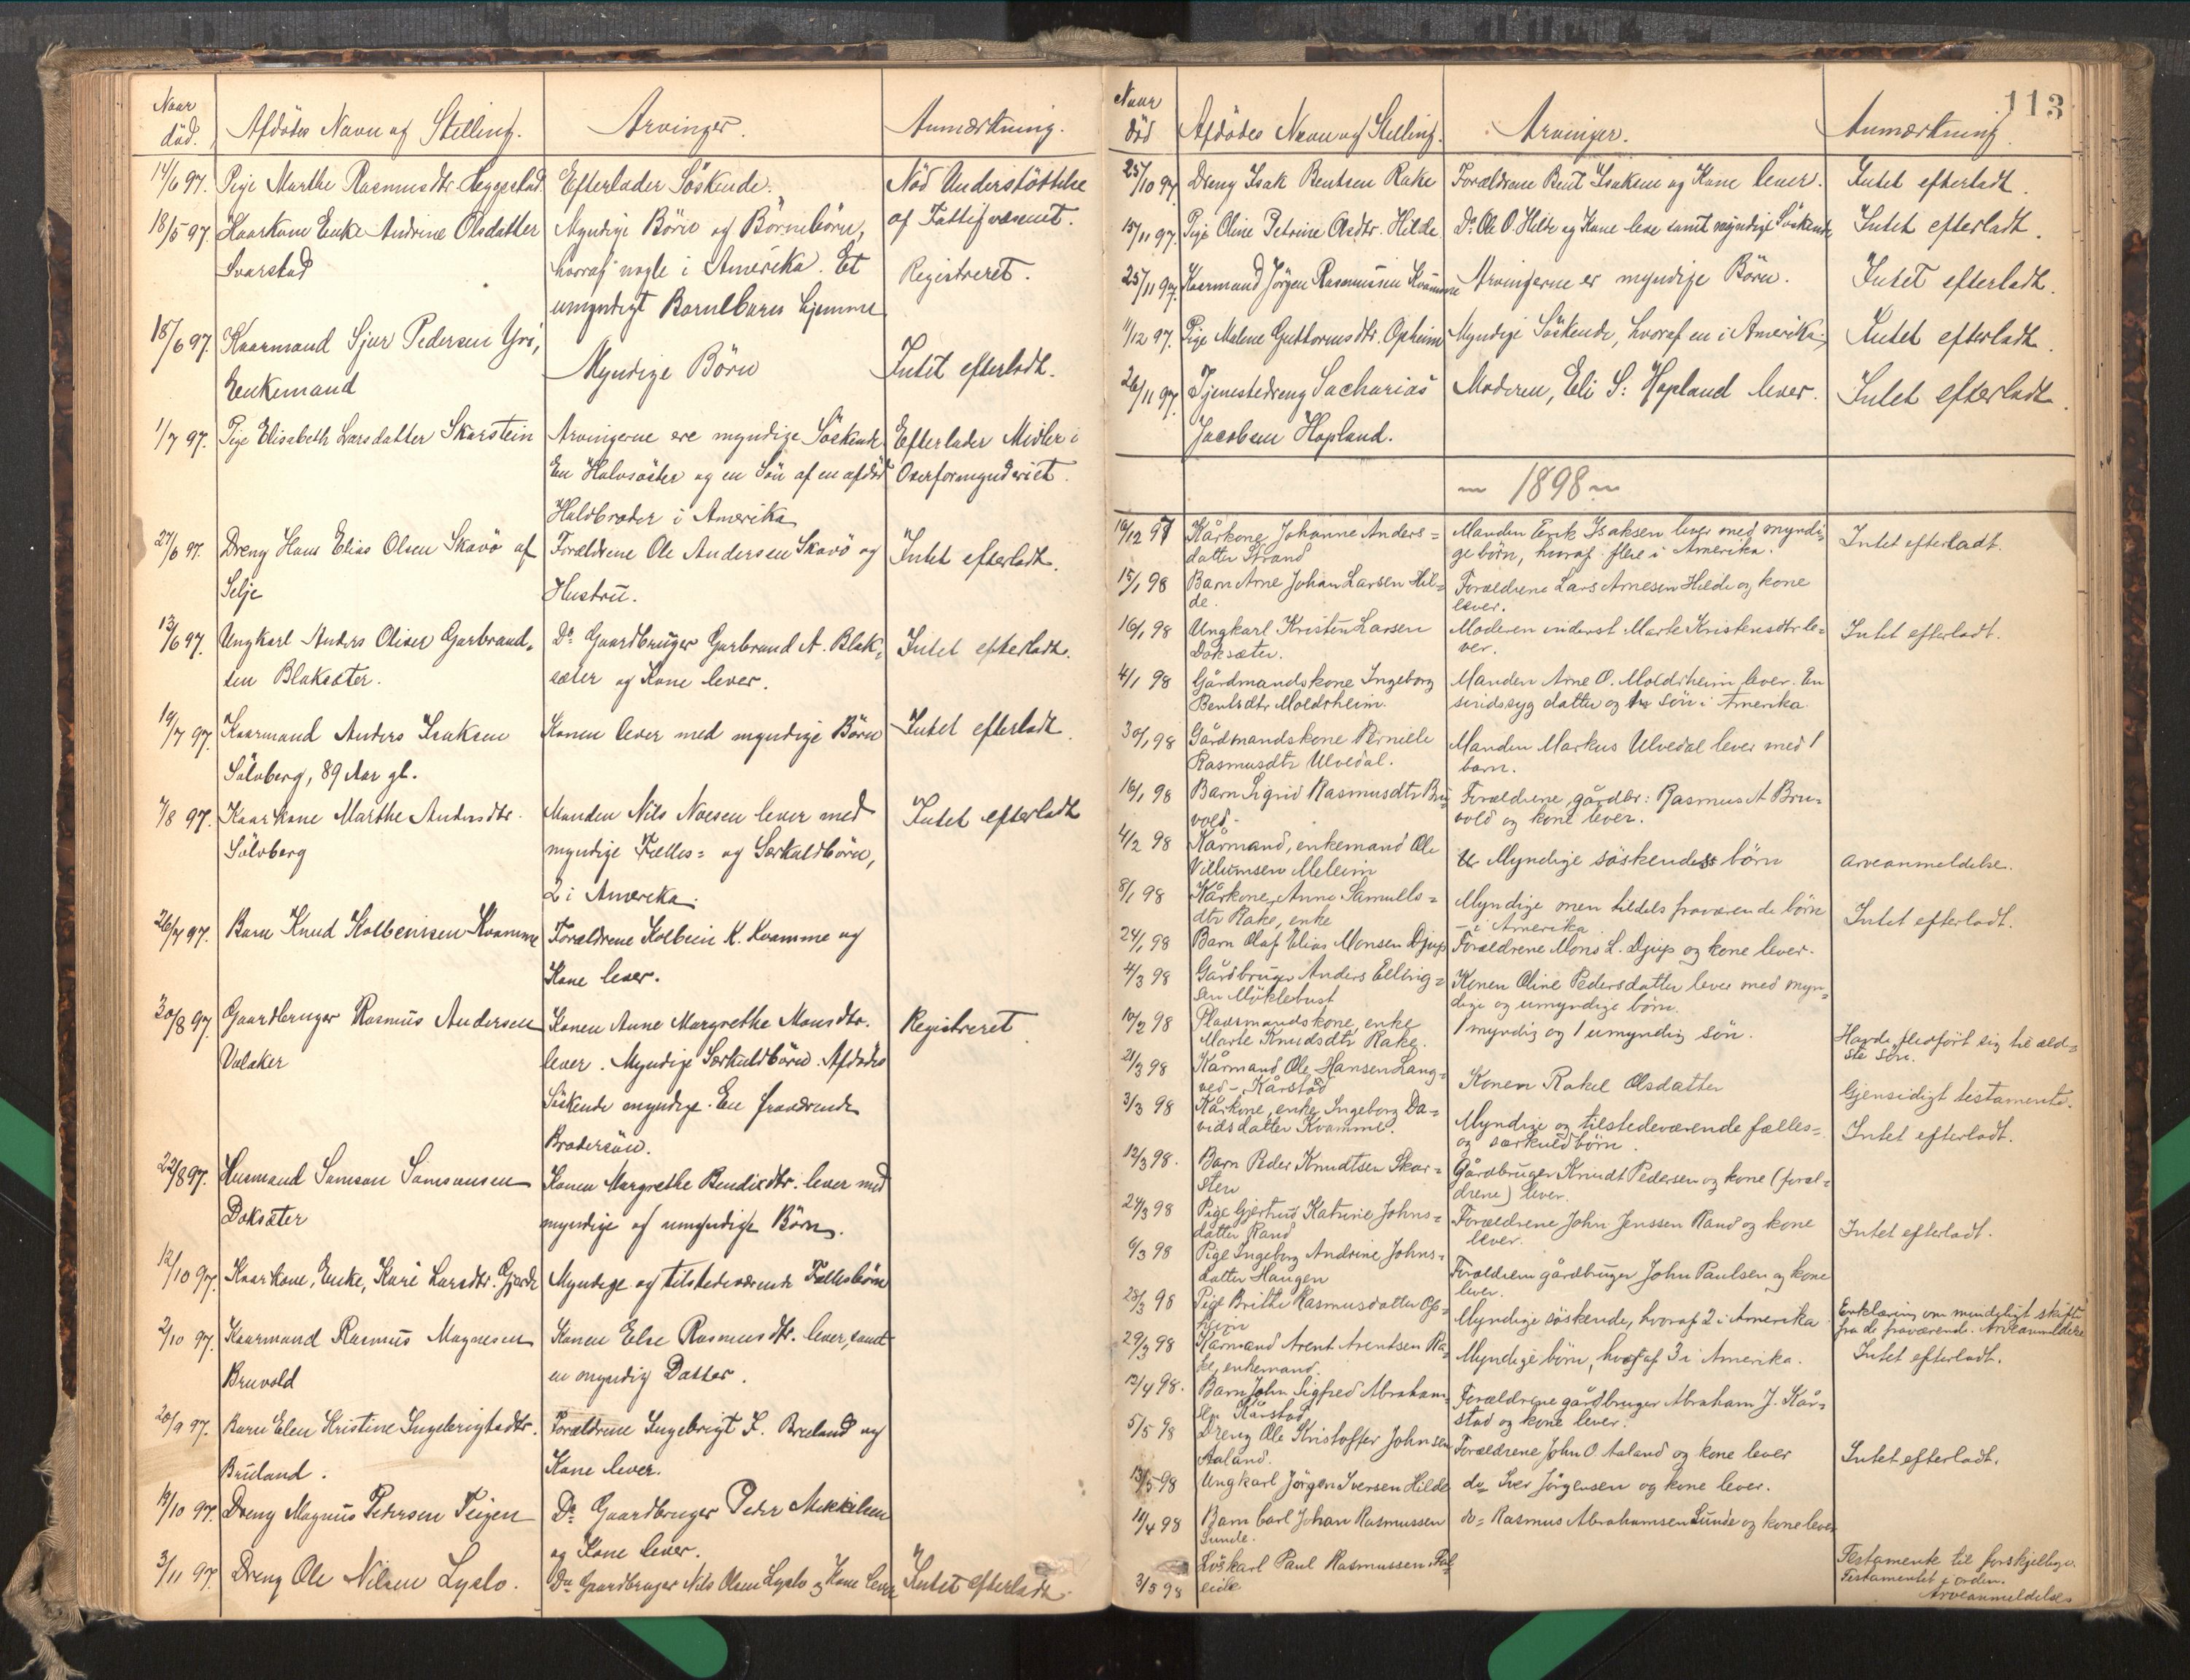 Naar
död.
Afdödes Navn og Stilling.
Arvinger.
Anmærkning.
14/6 97. Pige Marthe Rasmusdtr. Heggestad Efterlader Söskende. Nöd Understöttelse
af Fattigvæsenet.
18/5 97. Kaarkone Enke Andrine Olsdatter Myndige Börn og Börnebörn,
Svarstad hvoraf nogle i Amerika. Et Registreret.
umyndigt Barnebarn hjemme
18/6 97. Kaarmand Sjur Pedersen Yri,
Enkemand Myndige Börn Intet efterladt.
1/7 97. Pige Elisabeth Larsdatter Skarstein Arvingerne ere myndige Söskende. Efterlader Midler i
En Halvsöster og en Sön af en afdöd Overformynderiet.
Halvbroder i Amerika
27/6 97. Dreng Hans Elias Olsen Skavö af Forældrene Ole Andersen Skavö og Intet efterladt.
Selje Hustru.
13/6 97. Ungkarl Anders Oliver Garbrand- Do. Gaardbruger Garbrand A. Blak- Intet efterladt.
sen Blaksæter. sæter og Kone lever.
19/7 97. Kaarmand Anders Isaksen Konen lever med myndige Börn Intet efterladt.
Sölvberg, 89 Aar gl.
7/8 97. Kaarkone Marthe Andersdtr. Manden Nils Noesen lever med Intet efterladt
Sölvberg myndige Fælles- og Særkuldbörn,
2 i Amerika.
26/7 97. Barn Knud Kolbeinsen Kvamme Forældrene Kolbein K. Kvamme og
Kone lever.
30/8 97. Gaardbruger Rasmus Andersen Konen Anne Margrethe Monsdtr. Registreret
Valaker lever. Myndige Særkuldbörn. Afdödes
Söskende myndige. En fraværende
Brodersön.
22/8 97. Husmand Samson Samsonsen Konen Margrethe Bendixdtr. lever med
Doksæter myndige og umyndige Börn.
12/10 97. Kaarkone, Enke, Kari Larsdtr. Gjerde Myndige og tilstedeværende Fællesbörn
2/10 97. Kaarmand Rasmus Magnesen Konen Else Rasmusdtr. lever, samt
Bruvold en myndig Datter.
20/9 97. Barn Elen Kristine Ingebrigtsdtr. Forældrene Ingebrigt I. Bruland og
Bruland. Kone lever.
14/10 97. Dreng Magnus Pedersen Teigen Do. Gaardbruger Peder Mikkelsen
og Kone lever.
3/11 97. Dreng Ole Nilsen Lyslo. Do Gaardbruger Nils Olsen Lyslo og Kone lever Intet efterladt.
113
Naar
död
Afdödes Navn og Stilling.
Arvinger.
Anmærkning.
25/10 97 Dreng Isak Bentsen Rake Forældrene Bent Isaksen og Kone lever. Intet efterladt.
15/11 97. Pige Oline Petrine Olsdtr. Hilde Do. Ole O. Hilde og Kone lever samt myndige Söskende Intet efterladt.
25/11 97. Kaarmand Jörgen Rasmussen Kvamme Arvingerne er myndige Börn. Intet efterladt.
11/12 97. Pige Malene Guttormsdtr. Opheim Myndige Söskende, hvoraf en i Amerika, Intet efterladt.
26/11 97. Tjenestedreng Sacharias Moderen, Eli S. Hopland lever. Intet efterladt.
Jacobsen Hopland.
1898
16/12 97 Kårkone Johanne Anders- Manden Eirik Isaksen lever med myndi- Intet efterladt.
datter Strand ge börn, hvoraf flere i Amerika.
15/1 98 Barn Arne Johan Larsen Hil- Forældrene Lars Arnesen Hilde og kone
de. lever.
16/1 98 Ungkarl Kristen Larsen Moderen inderst Marte Kristensdtr le- Intet efterladt.
Doksæter. ver.
4/1 98 Gårdmandskone Ingeborg Manden Arne O. Moldrheim lever. En
Bentsdtr Moldrheim. sindssyg datter og sön i Amerika.
30/1 98 Gårdmandskone Pernille Manden Markus Ulvedal lever med 1
Rasmusdtr Ulvedal. barn.
16/1 98 Barn Sigrid Rasmusdtr Bru- Forældrene, gårdbr: Rasmus A. Bru-
vold. vold og kone lever.
4/2 98 Kårmand, enkemand Ole Myndige söskendes börn arveanmeldelse.
Villumsen Meleim
8/1 98 Kårkone, Anne Samuels- Myndige men tildels fraværende börn Intet efterladt.
dtr Rake, enke i Amerika
24/1 98 Barn Olaf Elias Monsen Djup Forældrene Mons L. Djup og kone lever.
4/3 98 Gårdbruger Anders Elling- Konen Oline Pedersdatter lever med myn-
sen Myklebust dige og umyndige börn.
10/2 98 Pladsmandskone, enke 1 myndig og 1 umyndig sön. Havde fledfört sig til æld-
Marte Knudsdtr Rake. ste sön.
21/3 98 Kårmand Ole Hansen Lang- Konen Rakel Olsdatter Gjensidigt testamente.
ved - Kårstad
3/3 98 Kårkone, enke Ingeborg Da- Myndige og tilstedeværende fælles- Intet efterladt.
vidsdatter Kvamme. og særkuldbörn.
12/3 98. Barn Peder Knudtsen Skar- Gårdbruger Knudt Pedersen og kone (foræl-
sten drene) lever.
24/3 98 Pige Gjertrud Katrine Johns- Forældrene John Jenssen Rand og kone Intet efterladt.
datter Rand lever.
6/3 98 Pige Ingeborg Andrine Johns- Forældrene gårdbruger John Paulsen og kone
datter Haugen lever.
28/3 98 Pige Brithe Rasmusdatter Op- Myndige söskende, hvoraf 2 i Amerika Erklæring om mindeligt skifte
heim fra de fraværende. Arveanmeldelse
29/3 98 Kårmand Arent Arentsen Ra- Myndige börn, hvoraf 3 i Amerika. Intet efterladt.
ke, enkemand.
12/4 98. Barn John Sigfred Abraham- Forældrene gårdbruger Abraham J. Kår-
sen Kårstad stad og kone lever.
5/5 98 Dreng Ole Kristoffer Johnsen Forældrene John O. Aaland og kone lever Intet efterladt.
Aaland.
13/5 98 Ungkarl Jörgen Iversen Hilde do Iver Jörgensen og kone lever.
11/4 98 Barn Carl Johan Rasmussen do= Rasmus Abrahamsen Sunde og kone lever
Sunde.
3/5 98 Löskarl Paul Rasmussen Fal- Testamente til forskjellige.
eide Testamentet i orden.
Arveanmeldelse